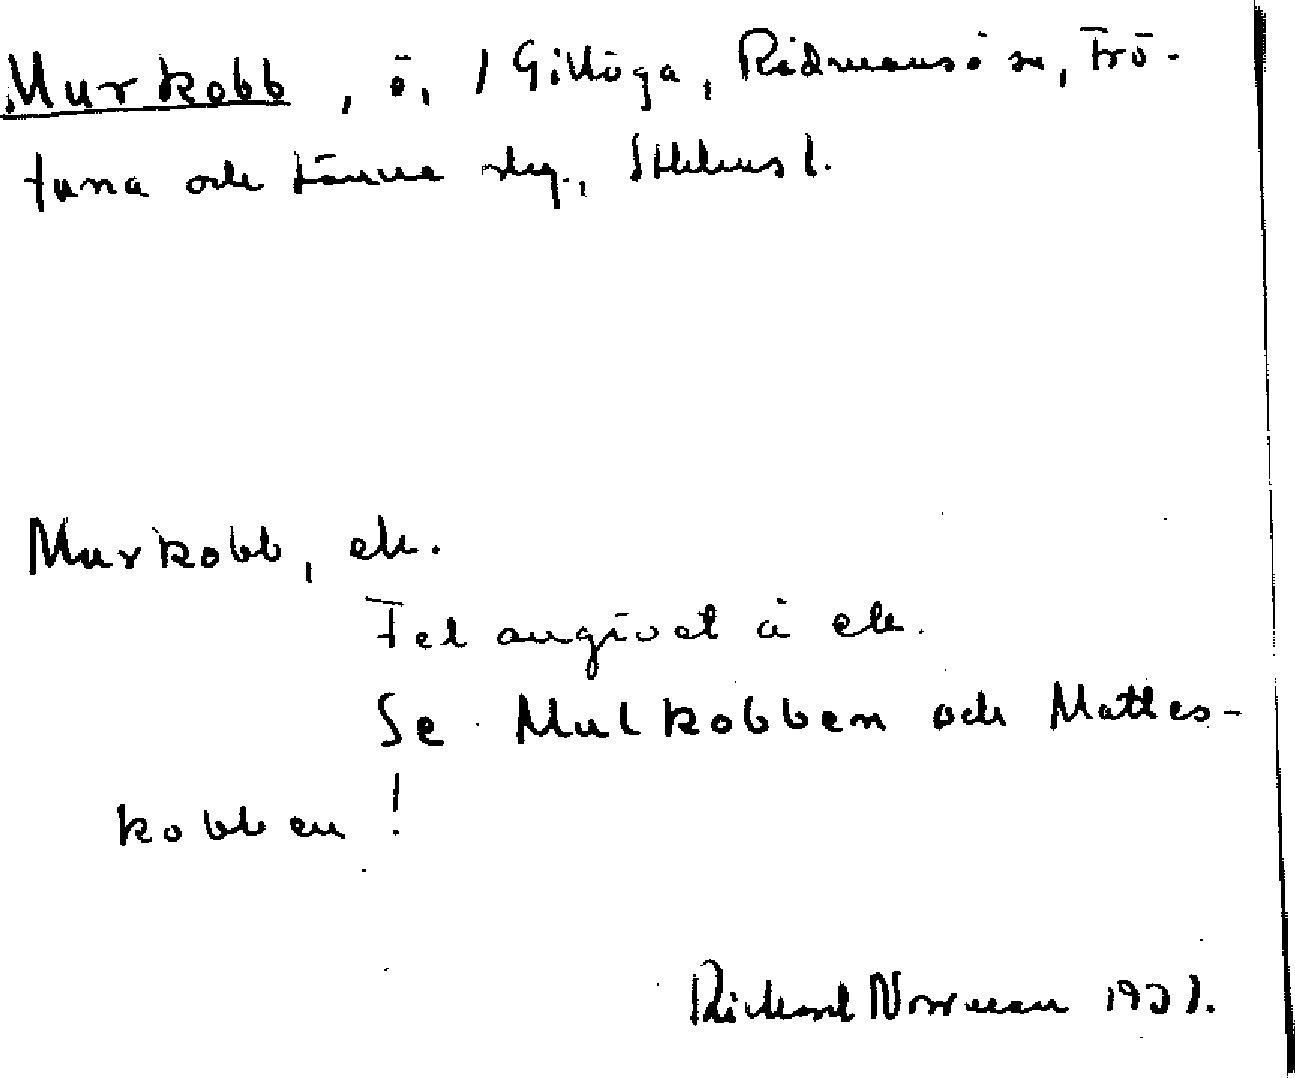 Murkobb, ö, i Gillöga, Rådmansö sn, Frö-
tuna och Länna slg., Sthlms l.
Murkobb, ek.
Fel angivet å ek.
Se Mulkobben och Mattes-
kobben!
Rickard Norrman